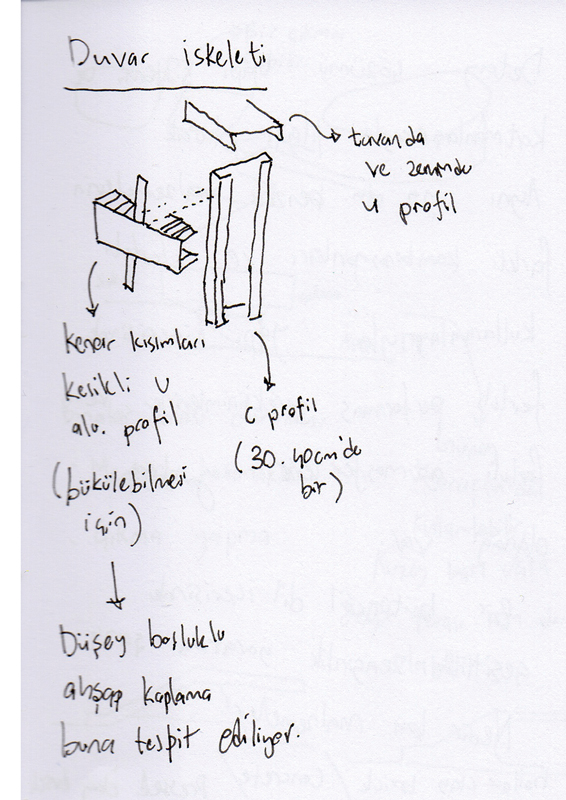 Duvar iskeleti
tavanda
ve zeminde
u profil
kenar kısımları
kesikli U
alu. profil
(bükülebilmesi
için)
C profil
(30.40cm'de
bir)
Düşey boşluklu
ahşap kaplama
buna tespit ediliyor.